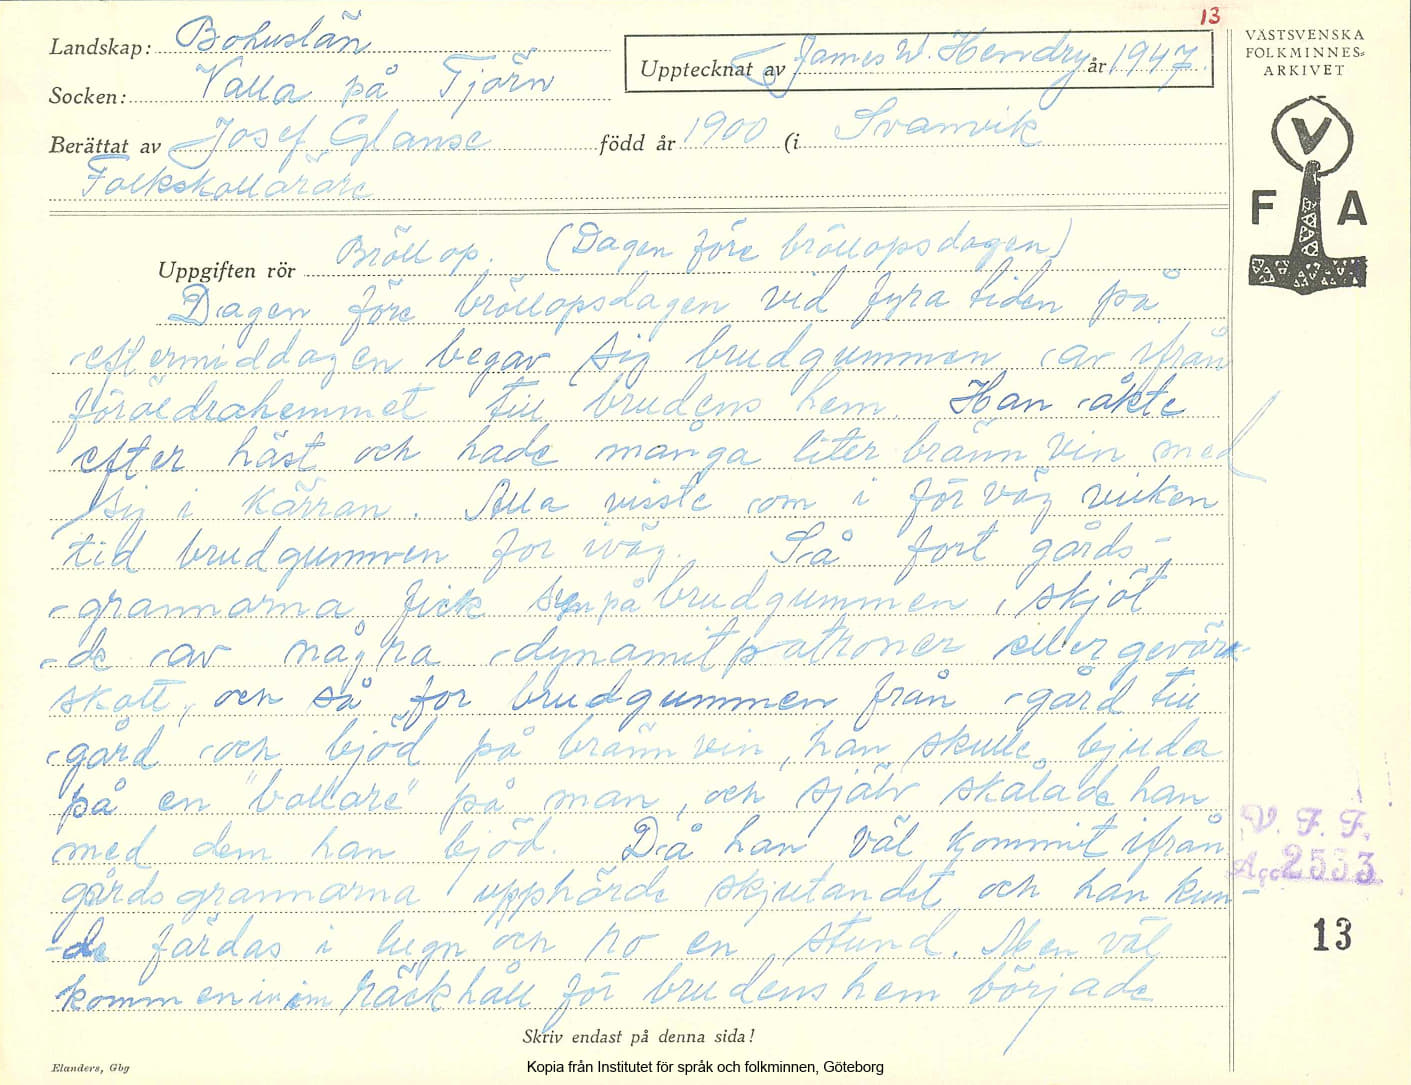 13
Landskap: Bohuslän
Upptecknat av James W. Hendry år 1947.
Socken: Valla på Tjörn
Berättat av Josef Glanse född år 1900 (i Svanvik
Folkskollärare
Uppgiften rör Bröllop. (Dagen före bröllopsdagen)
Dagen före bröllopsdagen vid fyra tiden på
eftermiddagen begav sig brudgummen av ifrån
föräldrahemmet till brudens hem. Han åkte
efter häst och hade många liter brännvin med
sig i kärran. Alla visste om i förväg vilken
tid brudgummen for iväg. Så fort gårds-
grannarna fick syn på brudgummen, sköt
de av några dynamitpatroner eller gevärs-
skott, och så for brudgummen från gård till
gård och bjöd på brännvin, han skulle bjuda
på en "bollare" på man, och själv skålade han
med dem han bjöd. Då han väl kommit ifrån
gårdsgrannarna upphörde skjutandet och han kun-
-de färdas i lugn och ro en stund. Men väl
kommen inom räckhåll för brudens hem började
Skriv endast på denna sida!
Elanders, Gbg
Kopia från Institutet för språk och folkminnen, Göteborg
VÄSTSVENSKA
FOLKMINNES-
ARKIVET
V
F A
V. F. F.
Acc 2533
13